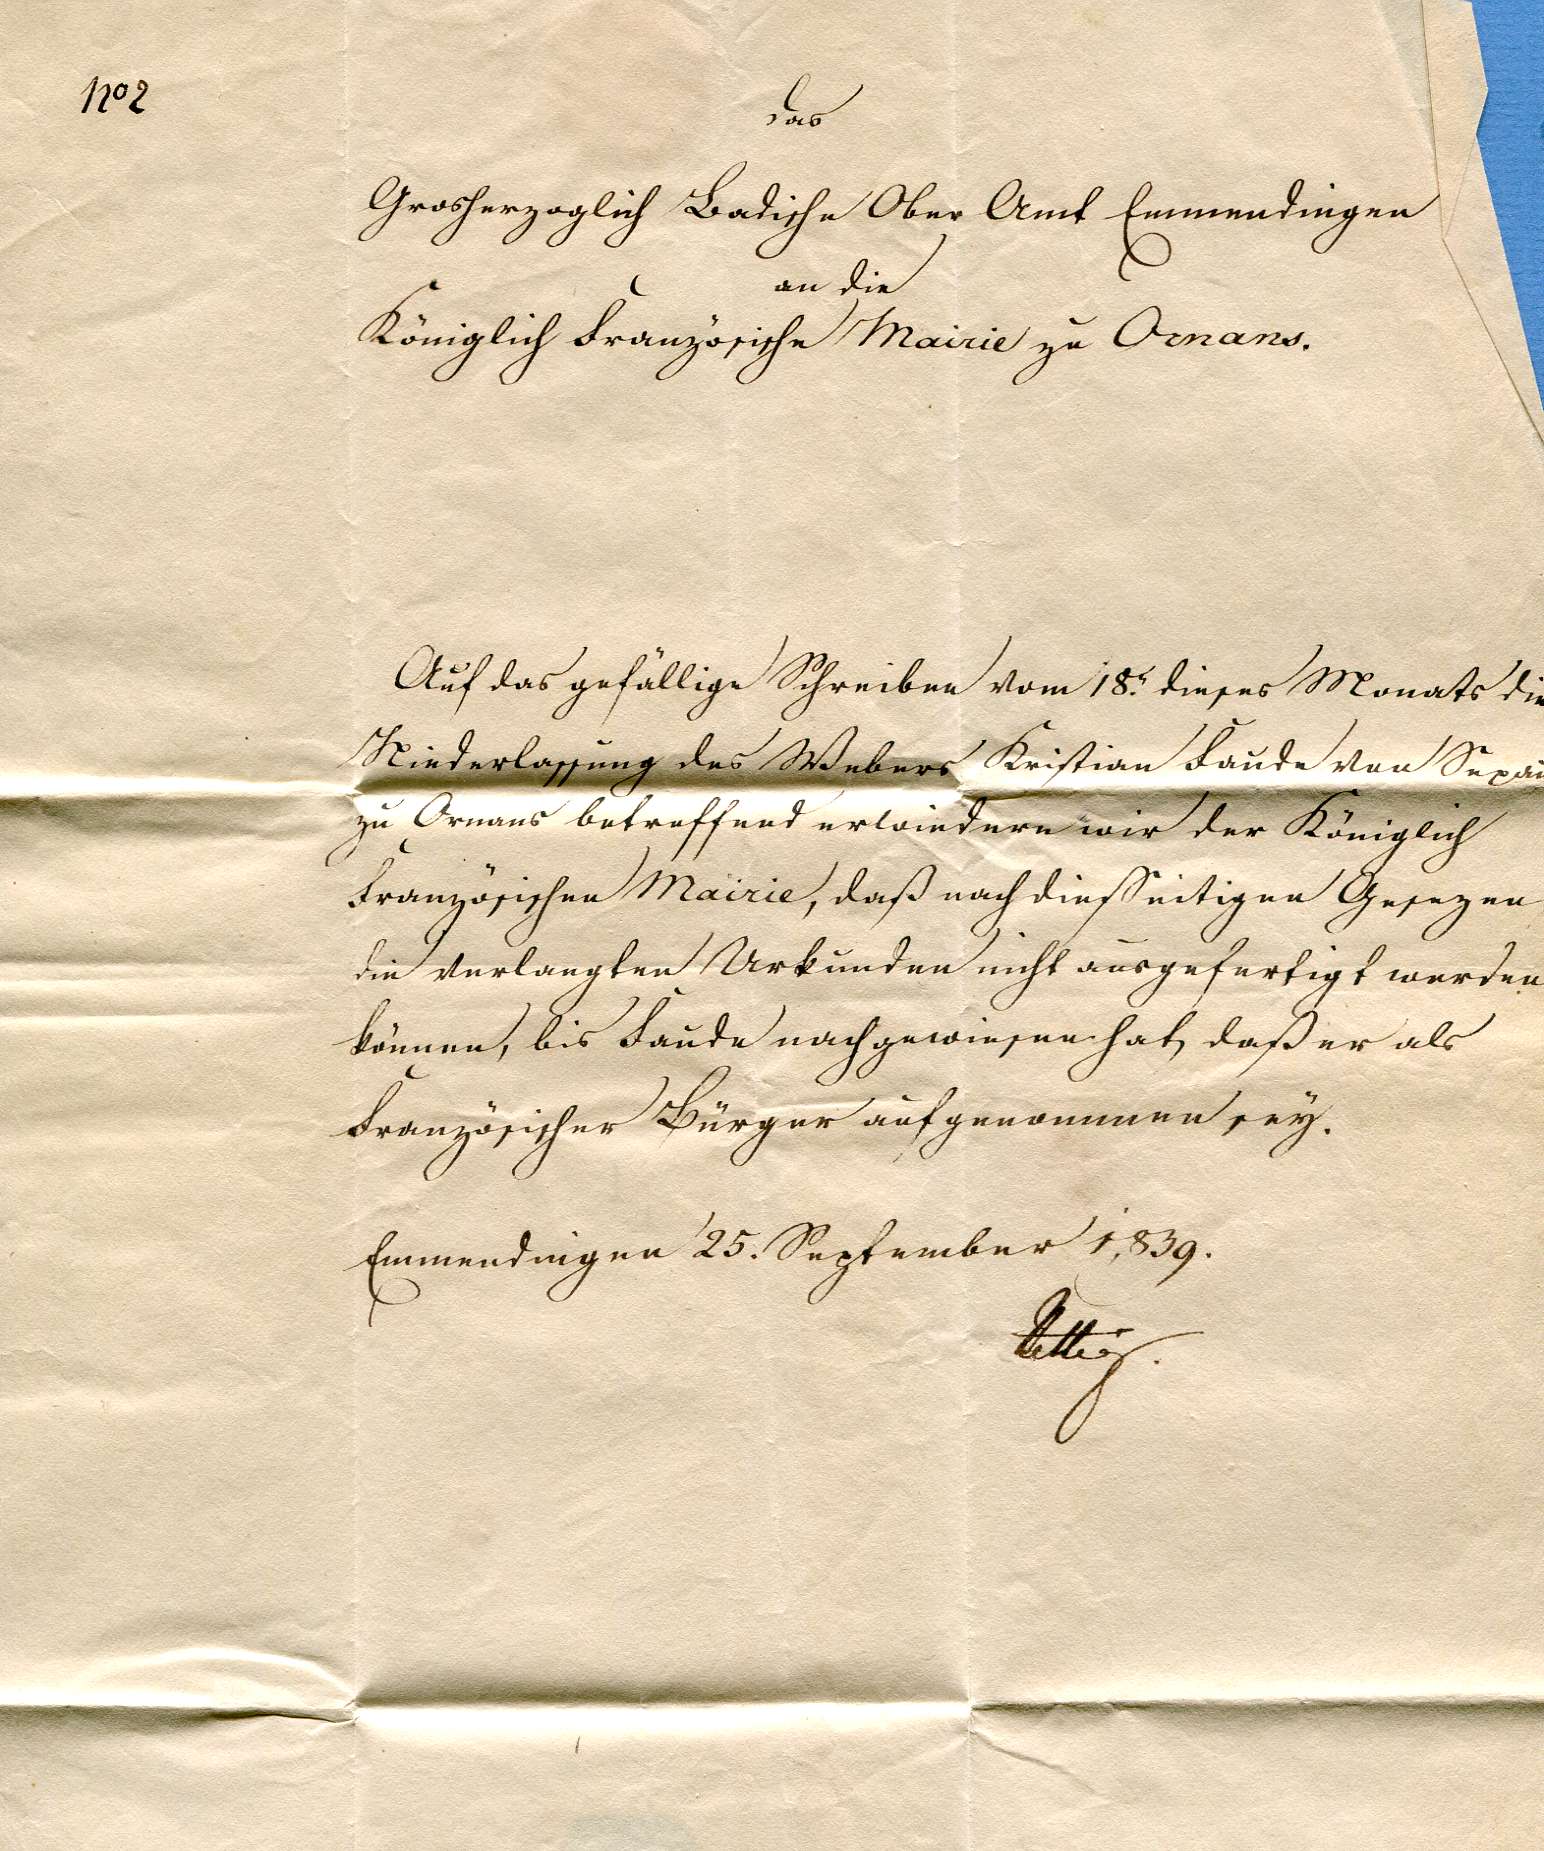 No 2
Das
Grosherzoglich Badische Ober Amt Emmendingen
an die
Königlich Französische Mairie zu Ornans.
Auf das gefällige Schreiben vom 18. dieses Monats die
Niederlassung des Webers Kristian Faude von Sexau
zu Ornans betreffend erwiedern wir der Königlich
Französischen Mairie, daß nach diesseitigen Gesezen
die verlangten Urkunden nicht ausgefertigt werden
können, bis Faude nachgewiesen hat, daß er als
Französischer Bürger aufgenommen sey.
Emmendingen 25. September 1839.